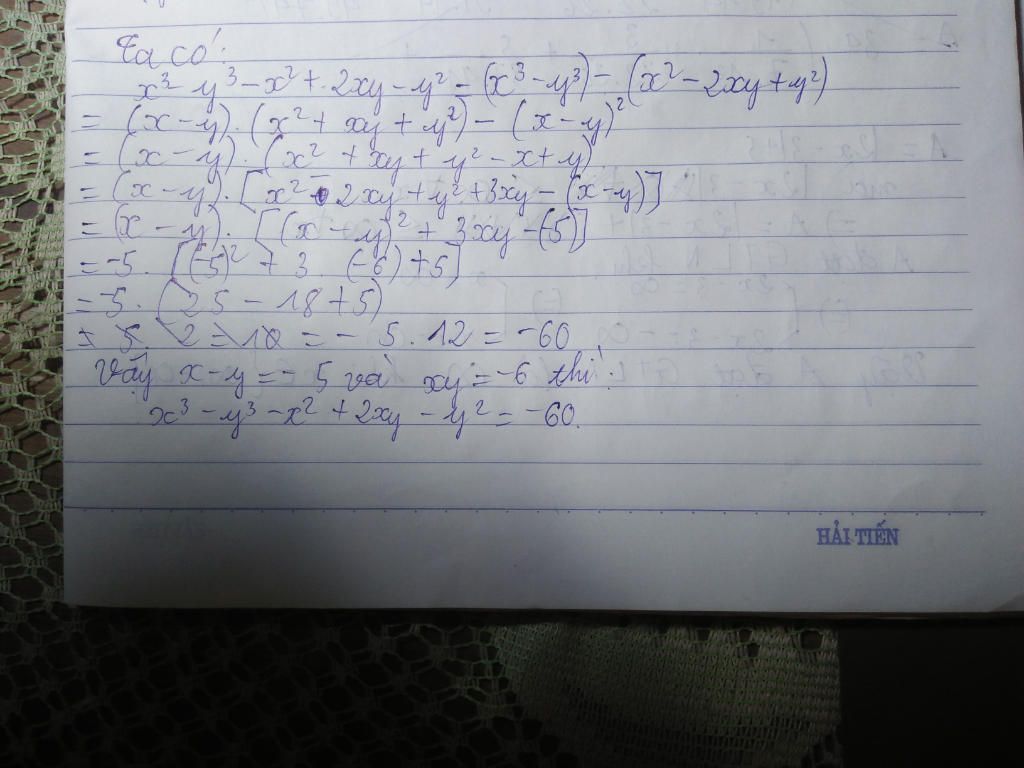 Ta có:
x³ - y³ - x² + 2xy - y² = (x³ - y³) - (x² - 2xy + y²)
= (x - y) . (x² + xy + y²) - (x - y)²
= (x - y) . (x² + xy + y² - x + y)
= (x - y) . [x² - 2xy + y² + 3xy - (x - y)]
= (x - y) . [(x - y)² + 3xy - (-5)]
= -5 . [(-5)² + 3 . (-6) + 5]
= -5 . (25 - 18 + 5)
= - 5 . 12 = -60
Vậy x - y = - 5 và xy = -6 thì:
x³ - y³ - x² + 2xy - y² = -60.
HẢI TIẾN